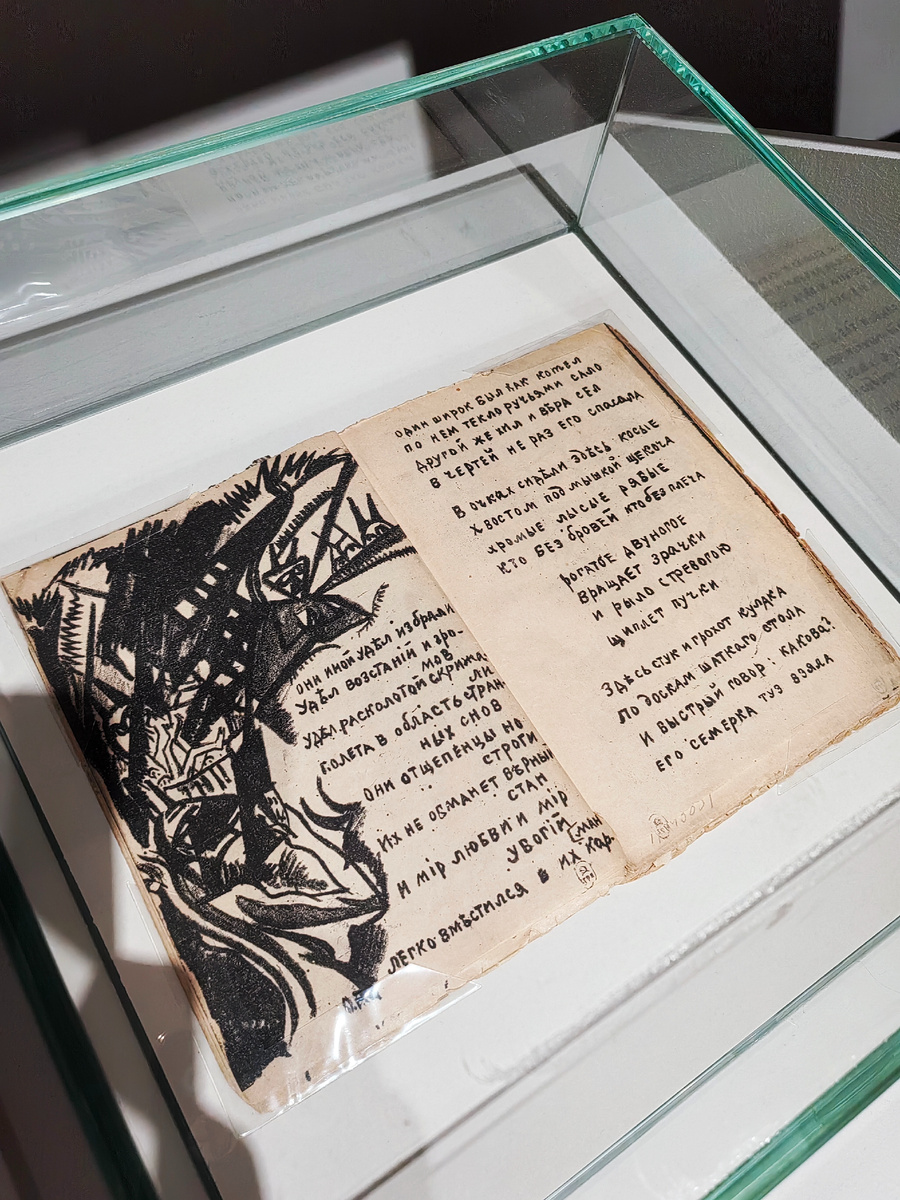 они иной удѣл избрали
Удѣл возстаній и гро-
мов
Удѣл расколотой скрижа
ли
Полета в область стран
ных снов
они отщепенцы но
строги
Их не обманет вѣрный
стан
И мір любви и мір
убогій
Легко вмѣстился в их кар
ман
один широк был как котел
по нем текло ручьями сало
другой же хил и вѣра сел
в чертей не раз его спасала
В очках сидѣли здѣсь косые
Хвостом под мышкой щекоча
хромые лысые рябые
кто без бровей кто без плеча
рогатое двуногое
вращает зрачки
и рыло с тревогою
щиплет пучки
Здѣсь стук и грохот кулака
По доскам шаткаго стола
И быстрый говор: какова?
его семерка туз взяла